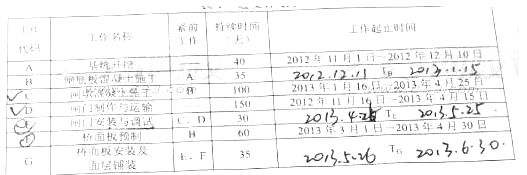 工作代码 工作名称 紧前工作 持续时间(天) 工作起止时间
A 基坑开挖 — 40 2012年11月1日~2012年12月10日
B A 35 2012.12.11 TB 2013.1.15
C B 100 2013年1月16日~2013年4月25日
D 闸门制作与运输 — 150 2012年11月16日~2013年4月15日
闸门安装与调试 C、D 30 2013.4.26 TE 2013.5.25
桥面板预制 B 60 2013年3月1日~2013年4月30日
G 桥面板安装及面层铺装 E、F 35 2013.5.26 TG 2013.6.30.